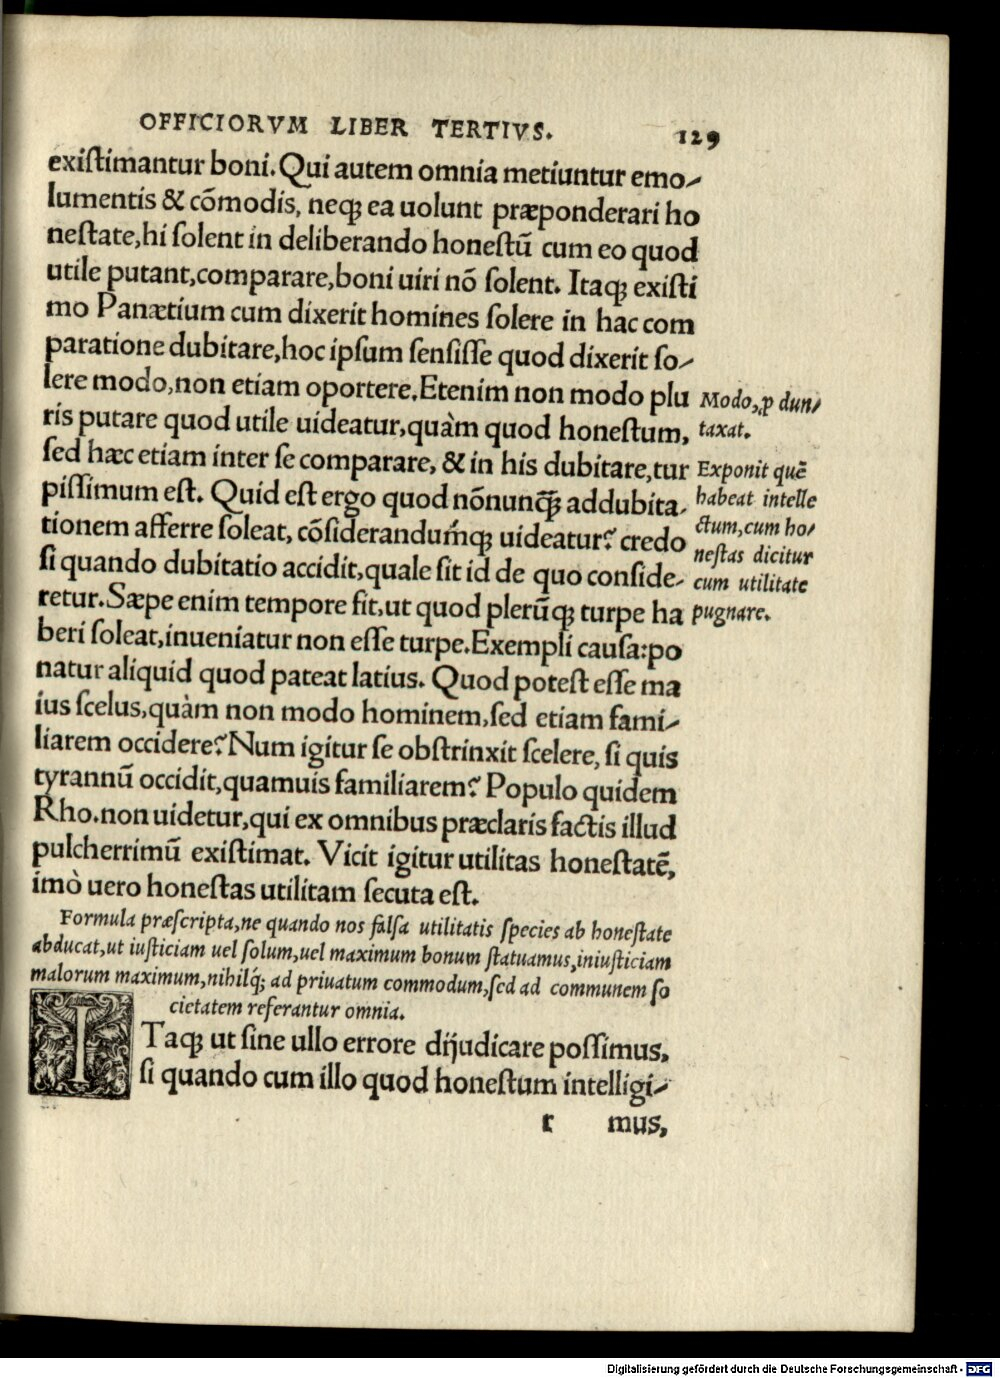 OFFICIORVM LIBER TERTIVS. 129
exiſtimantur boni. Qui autem omnia metiuntur emo-
lumentis & cõmodis, neqꝫ ea uolunt præponderari ho
neſtate, hi ſolent in deliberando honeſtũ cum eo quod
utile putant, comparare, boni uiri nõ ſolent. Itaqꝫ exiſti
mo Panætium cum dixerit homines ſolere in hac com
paratione dubitare, hoc ipſum ſenſiſſe quod dixerit ſo-
lere modo, non etiam oportere. Etenim non modo plu
ris putare quod utile uideatur, quàm quod honeſtum,
ſed hæc etiam inter ſe comparare, & in his dubitare, tur
piſſimum eſt. Quid eſt ergo quod nõnunqꝫ̃ addubita-
tionem afferre ſoleat, cõſiderandumq́ꝫ uideatur? credo
ſi quando dubitatio accidit, quale ſit id de quo conſide-
retur. Sæpe enim tempore fit, ut quod plerũqꝫ turpe ha
beri ſoleat, inueniatur non eſſe turpe. Exempli cauſa: po
natur aliquid quod pateat latius. Quod poteſt eſſe ma
ius ſcelus, quàm non modo hominem, ſed etiam fami-
liarem occidere? Num igitur ſe obſtrinxit ſcelere, ſi quis
tyrannũ occidit, quamuis familiarem? Populo quidem
Rho. non uidetur, qui ex omnibus præclaris factis illud
pulcherrimũ exiſtimat. Vicit igitur utilitas honeſtatẽ,
imò uero honeſtas utilitam ſecuta eſt.
Modo, ꝓ dun-
taxat.
Exponit quẽ
habeat intelle
ctum, cum ho-
neſtas dicitur
cum utilitate
pugnare.
Formula præſcripta, ne quando nos falſa utilitatis ſpecies ab honeſtate
abducat, ut iuſticiam uel ſolum, uel maximum bonum ſtatuamus, iniuſticiam
malorum maximum, nihilq́ꝫ ad priuatum commodum, ſed ad communem ſo
cietatem referantur omnia.
ITaqꝫ ut ſine ullo errore dijudicare poſſimus,
ſi quando cum illo quod honeſtum intelligi-
r mus,
Digitalisierung gefördert durch die Deutsche Forschungsgemeinschaft - DFG